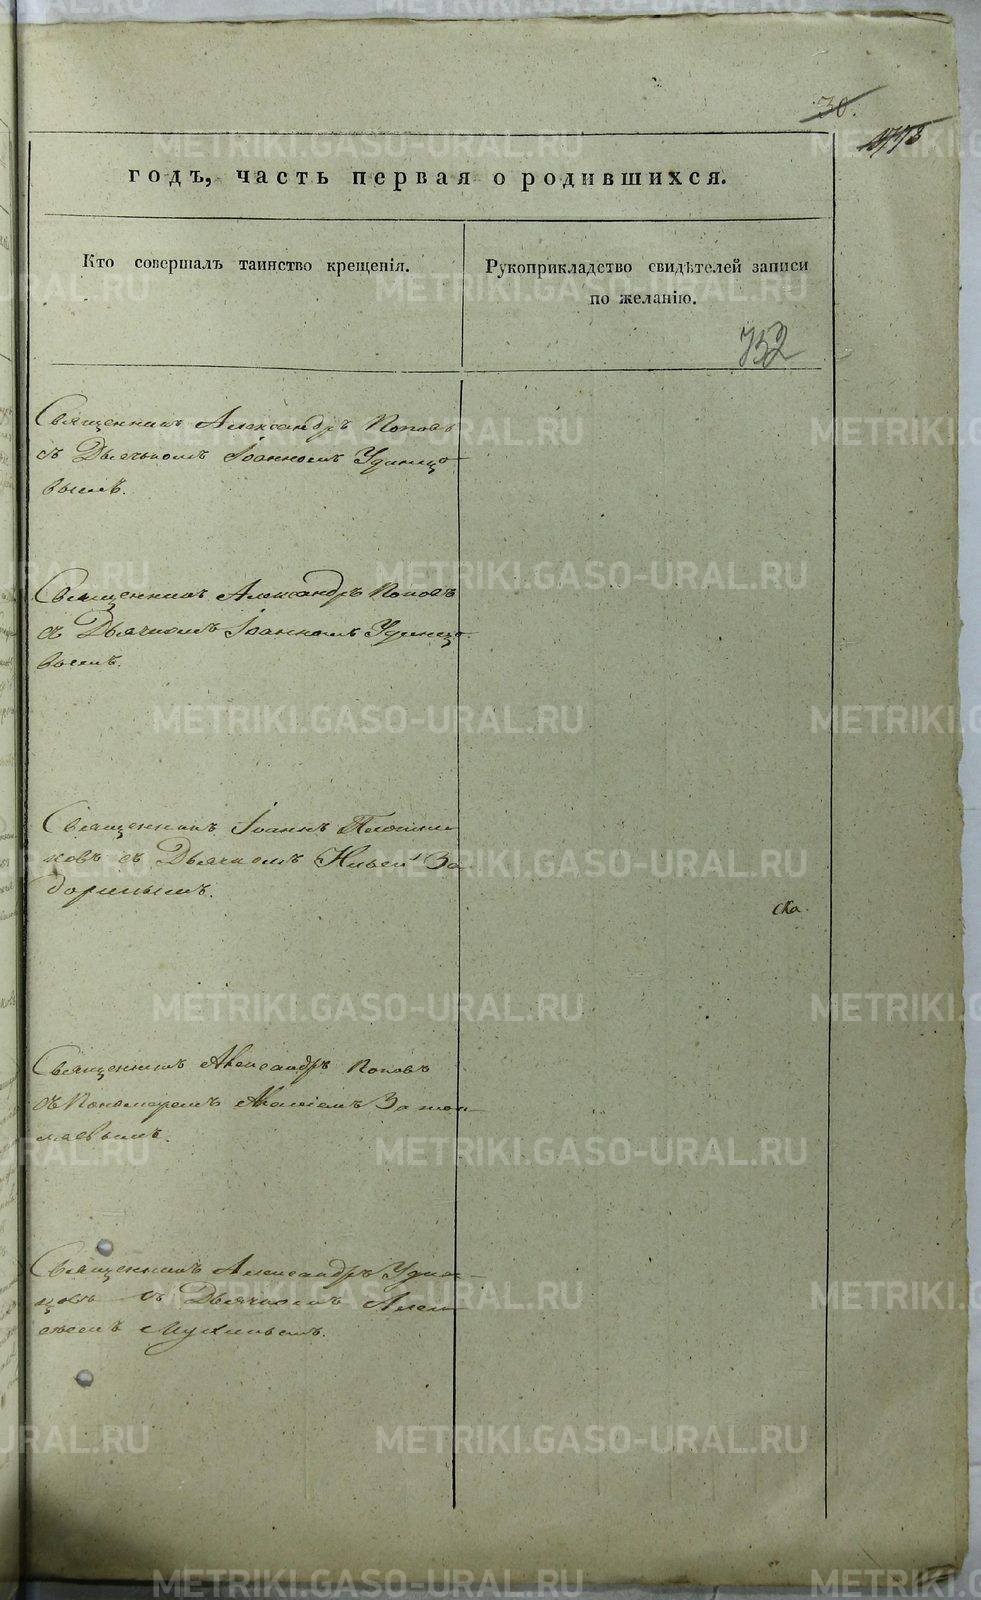 30.
годъ, часть первая о родившихся.
Кто совершалъ таинство крещенія.
Рукоприкладство свидѣтелей записи
по желанію.
752
Священникъ Александръ Поповъ
съ Дьячкомъ Іоанномъ Удинцо-
вымъ.
Священникъ Александръ Поповъ
съ Дьячкомъ Іоанномъ Удинцо-
вымъ.
Священникъ Іоаннъ Плотни
ковъ съ Дьячкомъ Ильей За
доринымъ.
ска.
Священникъ Александръ Поповъ
съ Пономаремъ
Священникъ Александръ Удин-
цовъ съ Дьячкомъ Алек
сѣемъ Мухинымъ.
METRIKI.GASO-URAL.RU